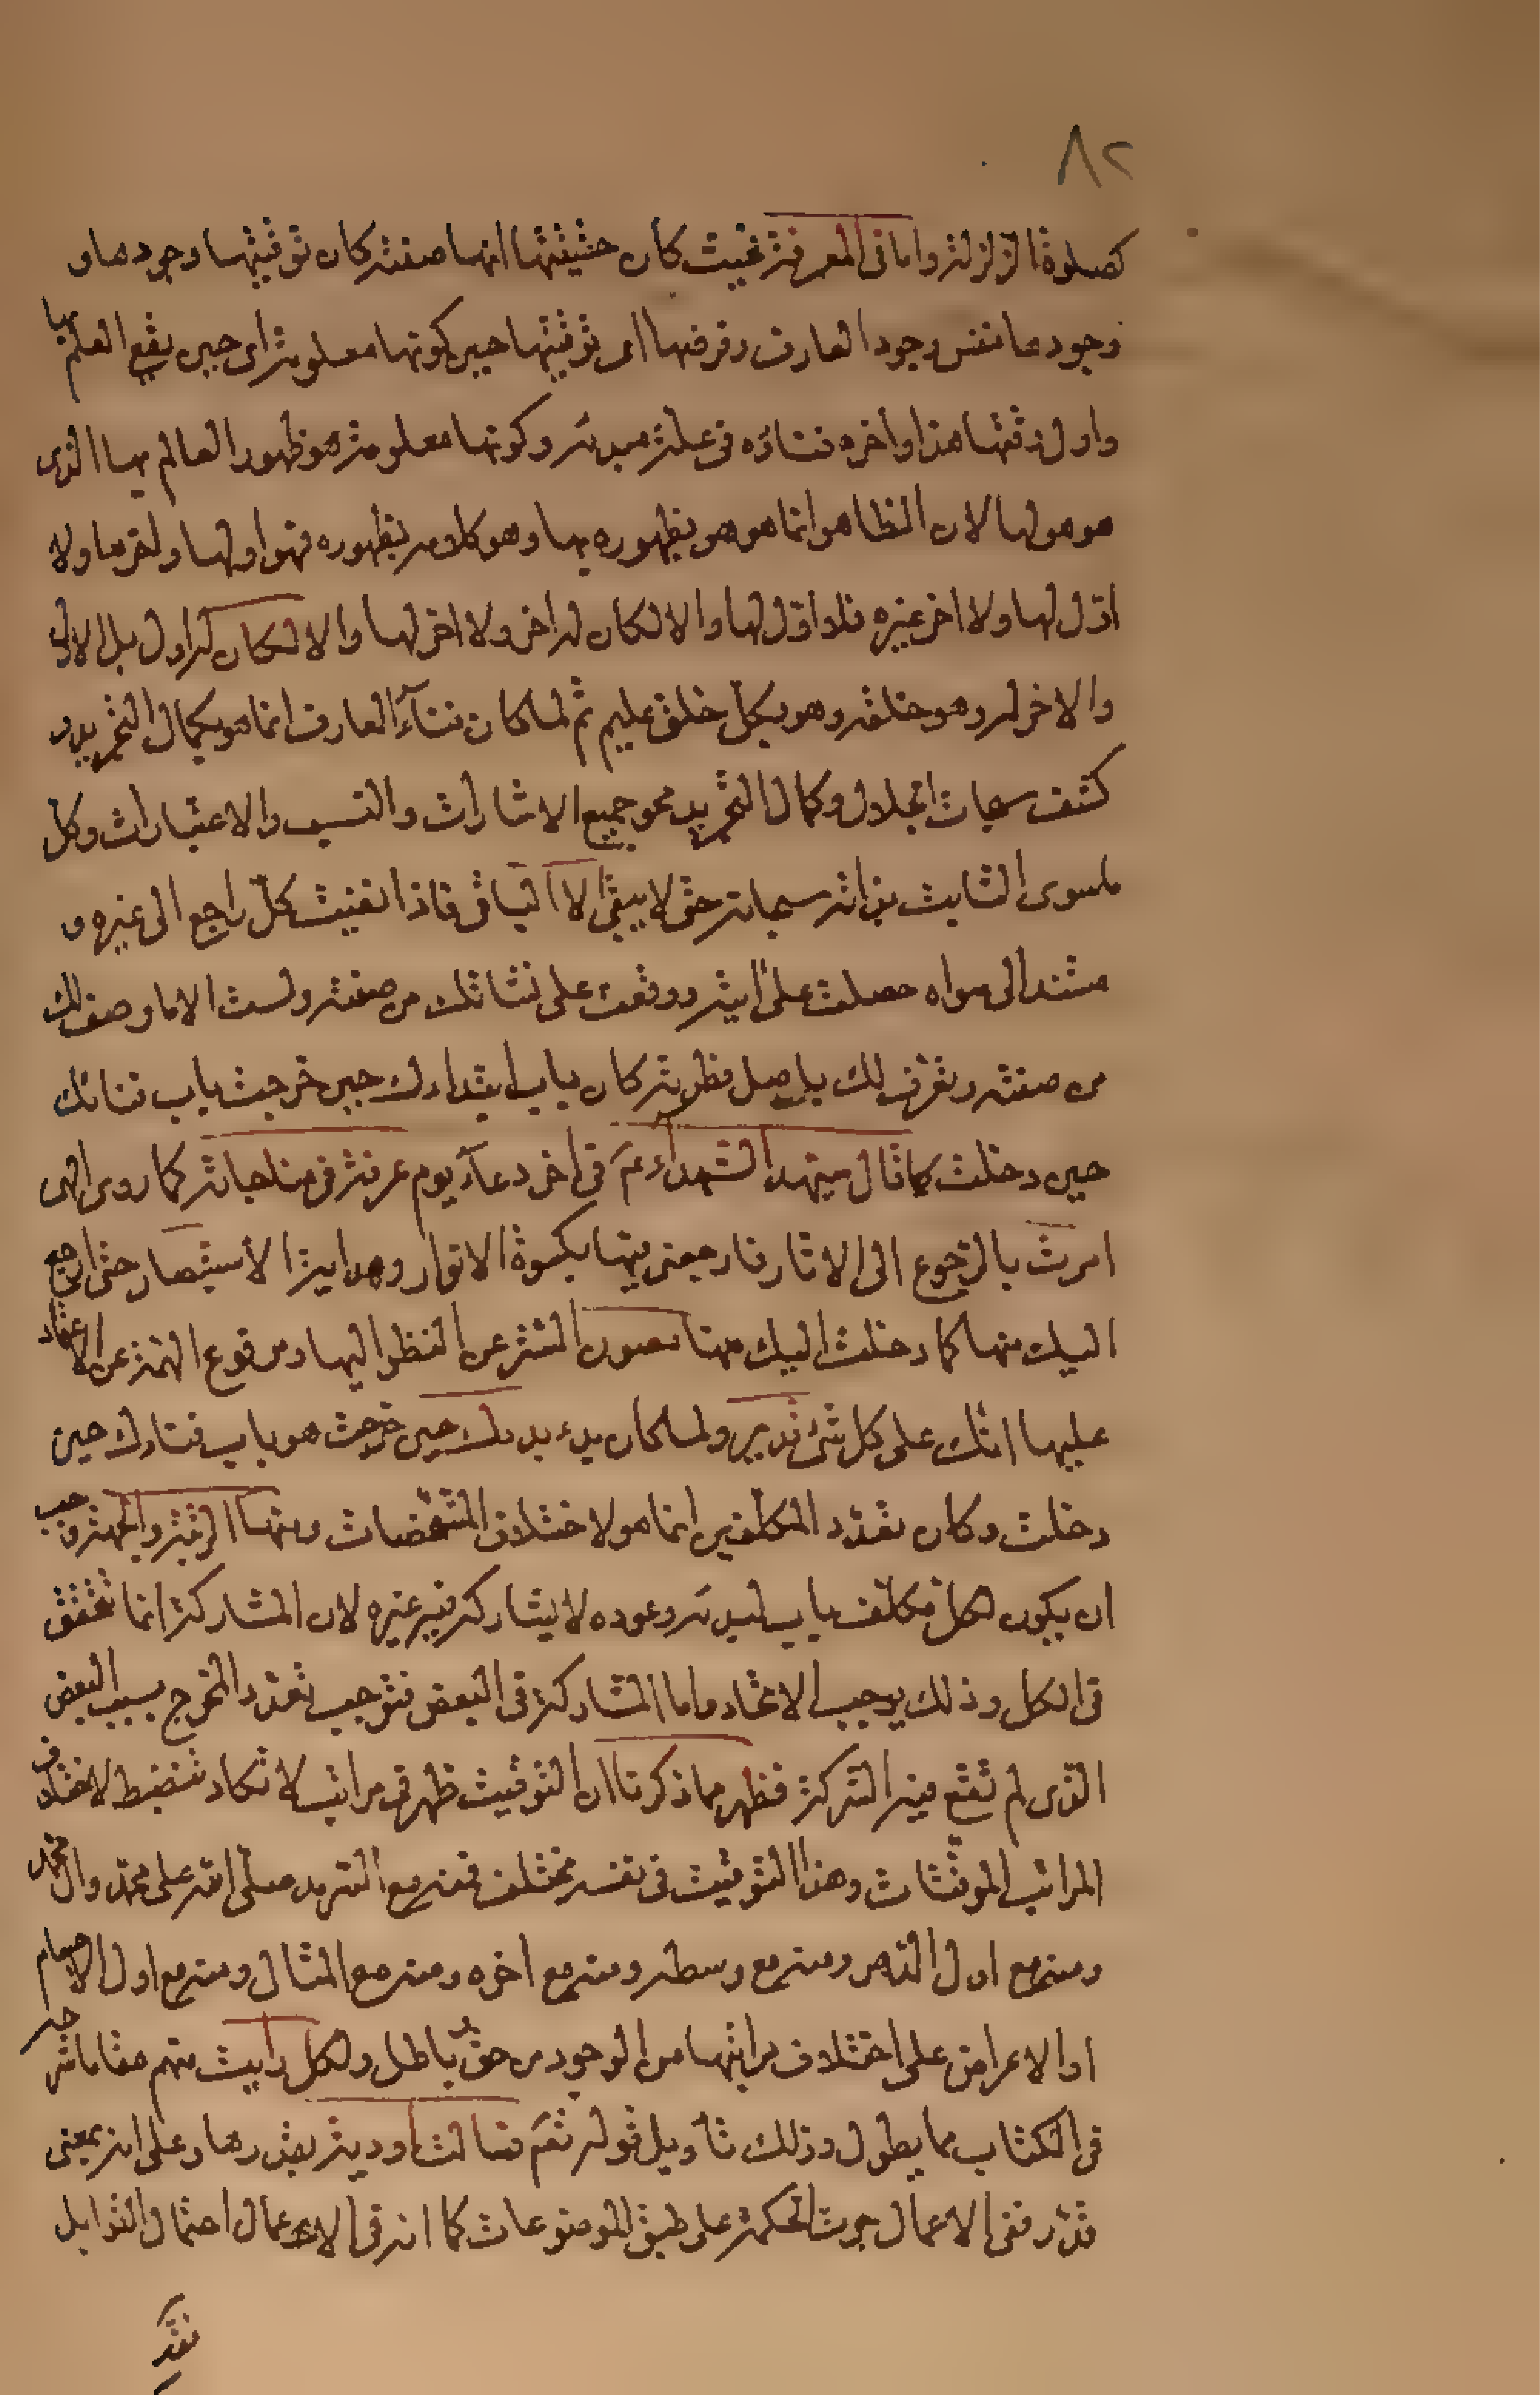 ٨٢
كصلوة الزلزلة واما فى المعرفة فحيث كان حقيقتها انها صفته كان توقيتها وجودها و
وجودها نفس وجود العارف وقرفها اى توقيتها حين كونها معلومة اى حين يقع العلم بها
واول وقتها هذا واخره فناؤه فى علة مبدئه وكونها معلومة هو ظهور العالم بها الذى
هو هو لها لان الظاهر انما هو هو بظهوره بها وهو كلامه بظهوره فهو اولها واخرها ولا
اول لها ولا اخر غيره فلا اول لها والا لكان له اخر ولا اخر لها والا لكان له اول بل الاول
والاخر له وهو خلقه وهو بكل خلق عليم ثم لما كان فناء العارف انما هو بكمال التجريد و
كشف سبحات الجلال وكمال التجريد محو جميع الاشارات والنسب والاعتبارات وكل
ما سوى الثابت بذاته سبحانه حتى لا يبقى الا الباقى فاذا نفيت كل راجع الى غيره و
مستند الى سواه حصلت على ايته ووقعت على نشاتك من صفته ولست الا ما وصف لك
من صفته وتعرف لك باصل فطرته كان باب ابتداءك حين خرجت باب فنائك
حين دخلت كما قال سيد الشهداء عم فى اخر دعاء يوم عرفة فى مناجاته كما روى الهى
امرت بالرجوع الى الاثار فارجعنى اليها بكسوة الانوار وهداية الاستبصار حتى ارجع
اليك منها كما دخلت اليك منها مصون السر عن النظر اليها ومرفوع الهمة عن الاعتماد
عليها انك على كل شئ قدير ولما كان بدء بدئك حين خرجت هو باب فناءك حين
دخلت وكان تعدد المكلفين انما هو لاختلاف المشخصات ومنها الرتبة والجهة وجب
ان يكون لكل مكلف باب لبدئه وعوده لا يشاركه فيه غيره لان المشاركة انما تحقق
فى الكل وذلك يوجب الاتحاد واما المشاركة فى البعض فتوجب تعدد المخرج بسبب البعض
الذى لم تقع فيه الشركة فظهر مما ذكرنا ان التوقيت ظهر فى مراتب لا تكاد تنضبط لاختلاف
المراتب الموقتات وهذا التوقيت فى نفسه مختلف فمنه مع السرمد صلى الله على محمد وال محمد
ومنه مع اول الدهر ومنه مع وسطه ومنه مع اخره ومنه مع المثال ومنه مع اول الاجسام
او الاعراض على اختلاف مراتبها من الوجود من حق وباطل ولكل رايت منهم مقاما شرحه
فى الكتاب مما يطول وذلك تأويل قوله تعم فسالت اودية بقدرها وعلى انه بمعنى
قدر ففى الاعمال جرت الحكمة على طبق الموضوعات كما انه فى الاعمال احتمال القوابل